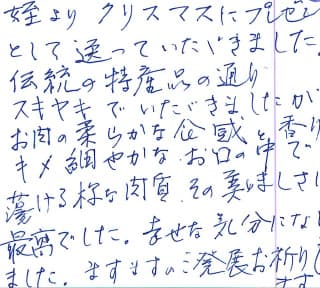 姪より クリスマスにプレゼン
として送っていただきました。
伝統の特産品の通り
スキヤキでいただきましたが
お肉の柔らかな食感と香り
キメ細やかな お口の中で
蕩ける様な肉質 その美味しさに
最高でした。幸せな気分にな
ました。ますますのご発展お祈りし
ます